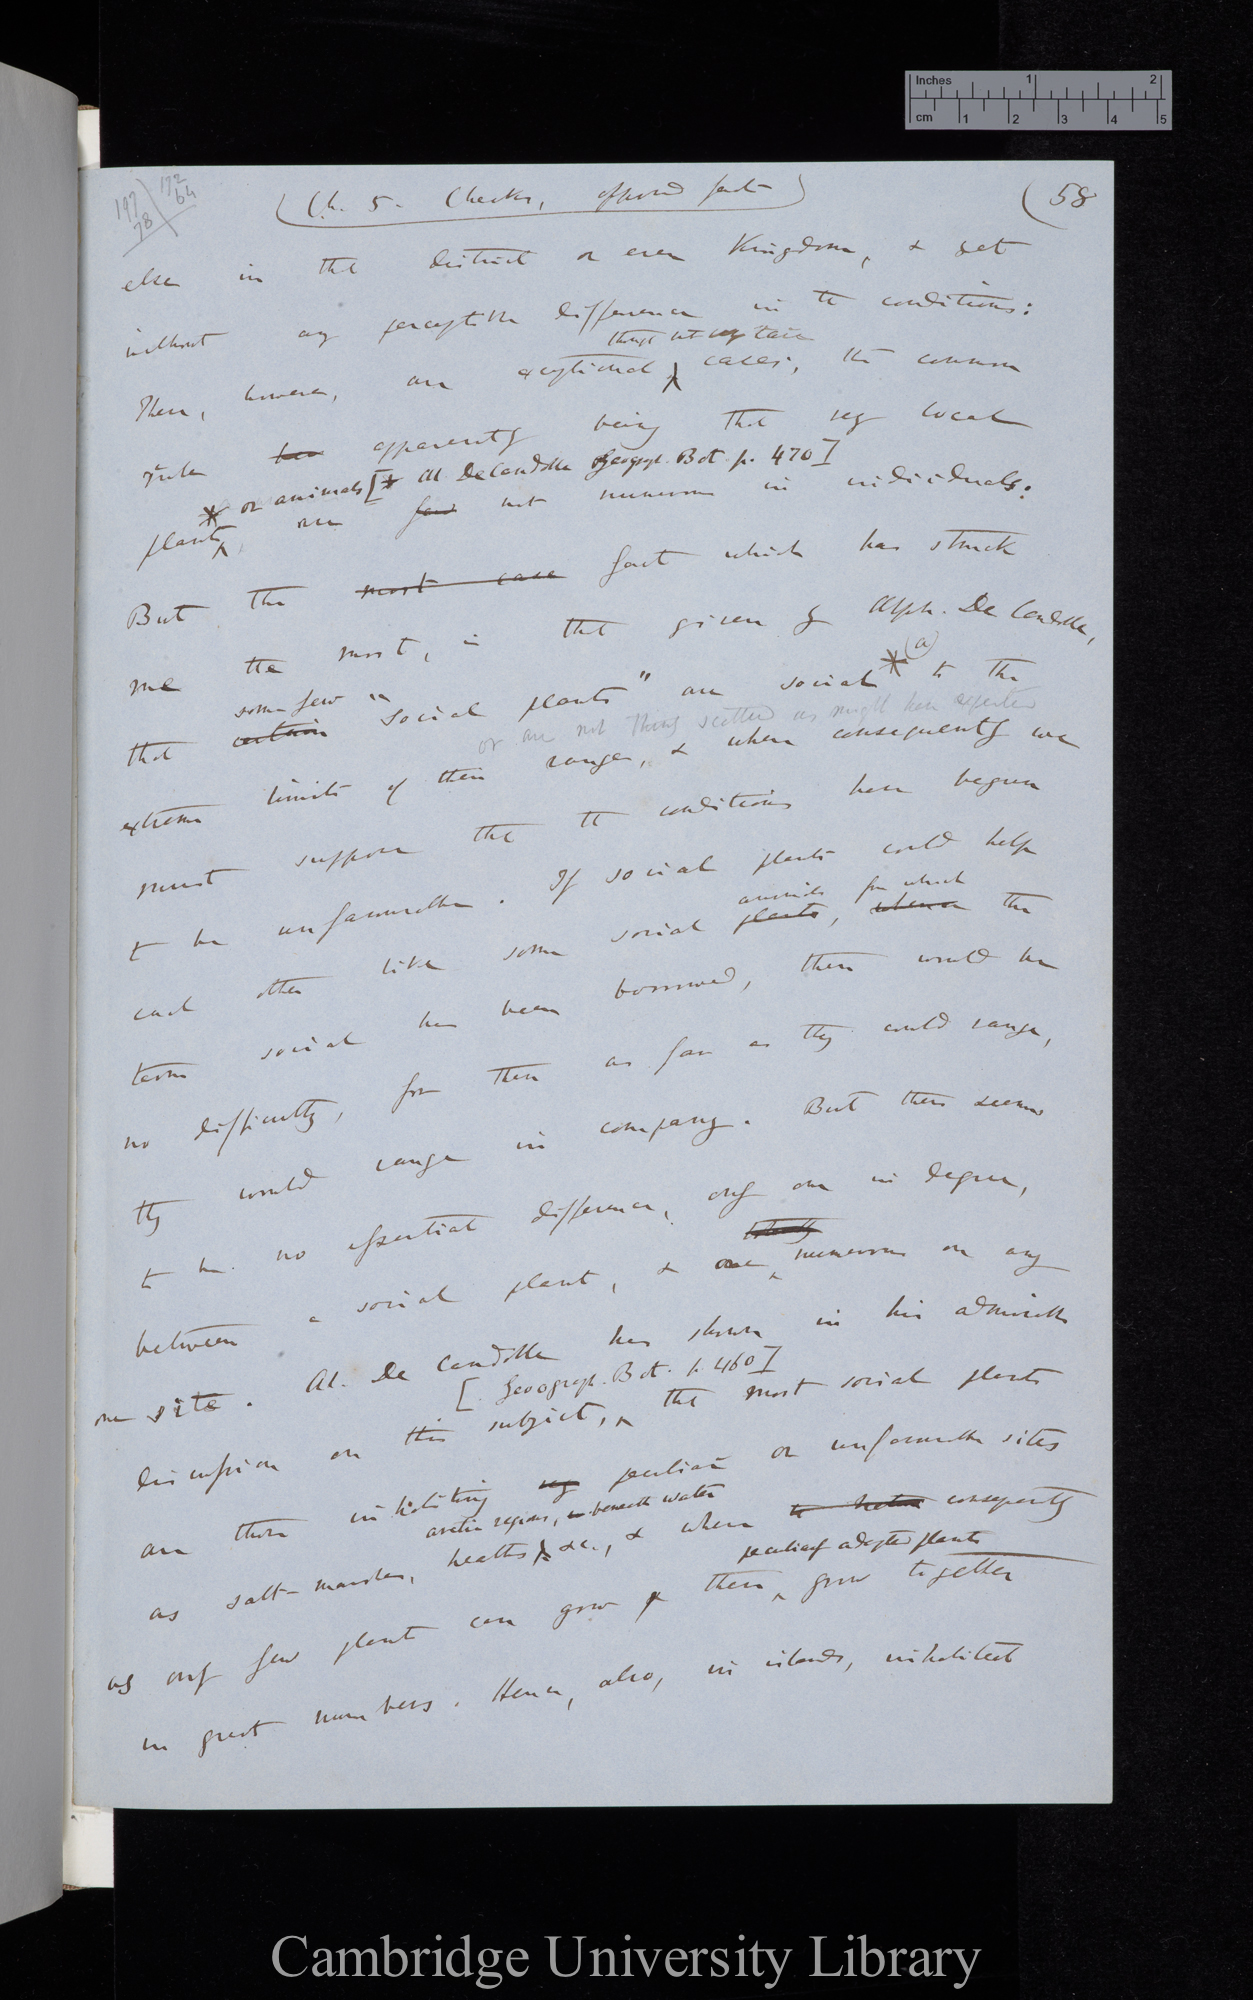 Inches 1 2
cm 1 2 3 4 5
197 172
78 64
(Ch. 5. Checks, opposed facts)
(58
else in the district or even Kingdom, & yet
without any perceptible difference in the conditions:
though not very rare
These, however, are exceptional cases; the common
rule apparently being that very local
* or animals [+ Al DeCandolle Geograph. Bot. p. 470]
plants, are few not numerous in individuals:
But the most case fact which has struck
me the most, is that given by Alph. De Candolle,
(a)
some few
that certain "social plants" are social* to the
or are not thinly scattered as might have been expected
extreme limits of their range, & where consequently we
must suppose that the conditions have begun
to be unfavourable. If social plants could help
animals from which
each other like some social plants, whence the
term social has been borrowed, there would be
no difficulty, for then as far as they could range,
they would range in company. But there seems
to be no essential difference, only one in degree,
between a social plant, & one numerous on any
one site. Al. De Candolle has shown in his admirable
[. Geograph. Bot. p. 460]
discussion on this subject, the most social plants
are those inhabiting very peculiar or unfavourable sites
arctic regions, beneath water
as salt-marshes, heaths &c., & where consequently
peculiarly adapted plants
as only few plants can grow there, grow together
in great numbers. Hence, also, in islands, inhabited
Cambridge University Library